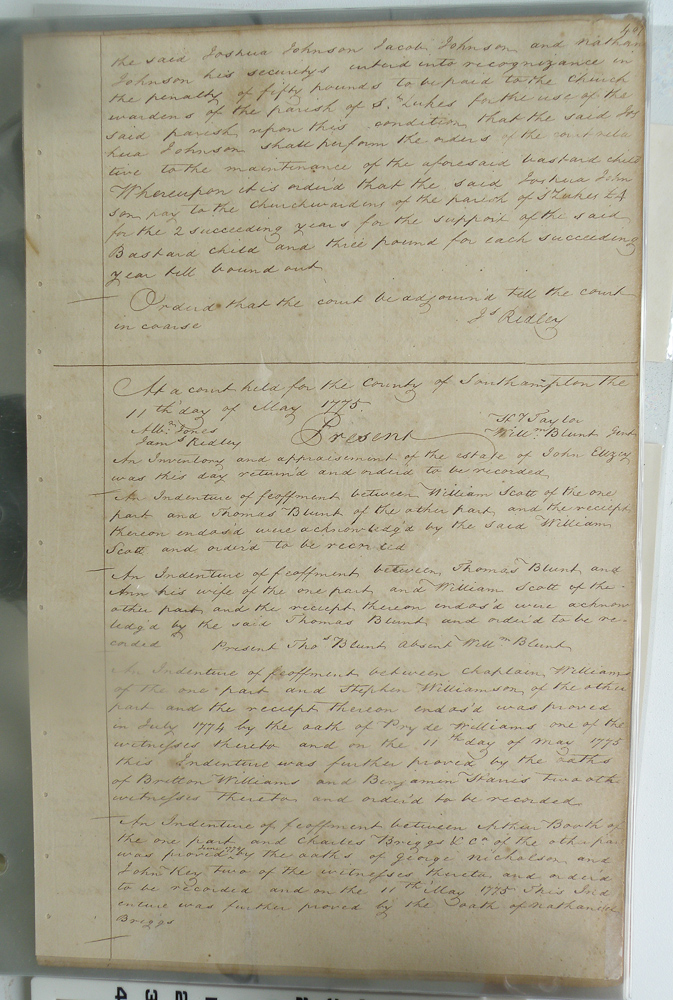 the said Joshua Johnson Jacob Johnson and Nathan
Johnson his securitys enterd into recognizance in
the penalty of fifty pounds to be paid to the church
wardens of the parish of St. Lukes for the use of the
said parish upon this condition that the said Jos
hua Johnson shall perform the orders of the court rela
tive to the maintenance of the aforesaid bastard child
Whereupon it is order'd that the said Joshua John
son pay to the Churchwardens of the parish of St Lukes £4
for the 2 succeeding years for the support of the said
Bastard child and three pound for each succeeding
year till bound out
Orderd that the court be adjournd till the court
in coarse Js Ridley
At a court held for the County of Southampton the
11th day of May 1775.
Present
Jams Ridley
Hy Taylor
Willm Blunt Gent
An Inventory and appraisement of the estate of John
was this day return'd and order'd to be recorded
An Indenture of feoffment between William Scott of the one
part and Thomas Blunt of the other part and the receipt
thereon endos'd were acknowledg'd by the said William
Scott and order'd to be recorded
An Indenture of feoffment between Thomas Blunt and
Ann his wife of the one part and William Scott of the
other part and the receipt thereon endos'd were acknow
ledg'd by the said Thomas Blunt and order'd to be re-
corded Present Thos Blunt absent Willm Blunt
An Indenture of feoffment between chaplain Williams
of the one part and Stephen Williamson of the other
part and the receipt thereon endos'd was proved
in July 1774 by the oath of Pryde Williams one of the
witnesses thereto and on the 11th day of May 1775
this Indenture was further proved by the oaths
of Britton Williams and Benjamin Harris two oth
witnesses thereto and order'd to be recorded
An Indenture of feoffment between Arthur Booth of
the one part and Charles Briggs & Co of the other par
was proved June 1774 by the oaths of George Nicholson and
John Key two of the witnesses thereto and order'd
to be recorded and on the 11th May 1775 This Ind
enture was further proved by the oath of Nathaniel
Briggs